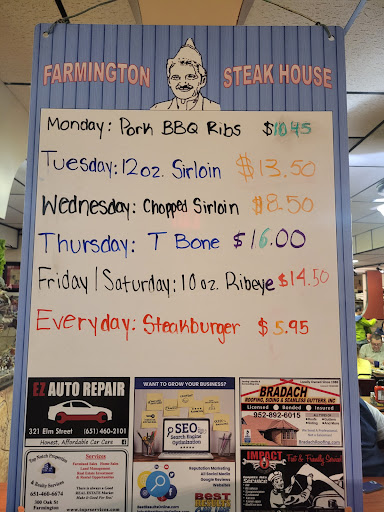 FARMINGTON STEAK HOUSE
Monday: Pork BBQ Ribs $10.45
Tuesday: 12 oz. Sirloin $13.50
Wednesday: Chopped Sirloin $8.50
Thursday: T Bone $16.00
Friday / Saturday: 10 oz. Ribeye $14.50
Everyday: Steakburger $5.95
EZ AUTO REPAIR
321 Elm Street (651) 460-2101
Honest, Affordable Car Care
WANT TO GROW YOUR BUSINESS?
SEO
Search Engine
Optimization
Reputation Marketing
All Social Media
Google Reviews
Websites
BEST
BRADACH
ROOFING, SIDING & SEAMLESS GUTTERS, INC
Licensed Bonded Insured
952-892-6015
Services
651-460-6674
300 Oak St
Farmington
www.tnprservices.com
IMPACT
Fast & Friendly Service!